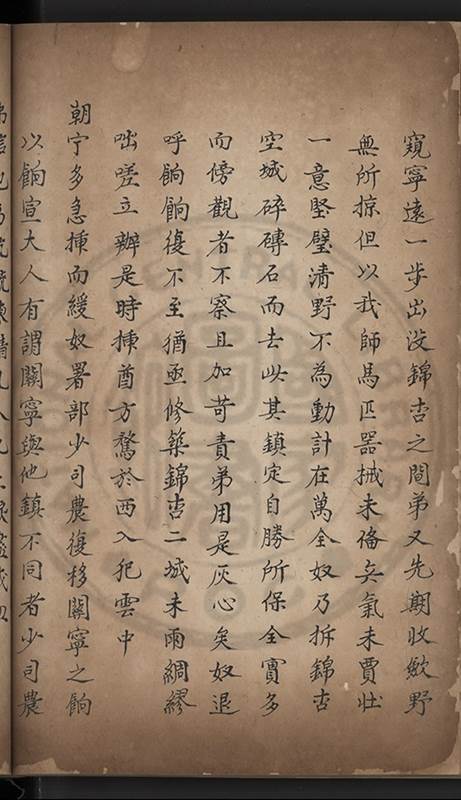 窺寧遠一步出沒錦杏之間弟又先期收斂野
無所掠但以我師馬匹器械未俻兵氣未賈壯
一意堅壁清野不為動計在萬全奴乃拆錦杏
空城碎磚石而去此其鎮定自勝所保全實多
而傍觀者不察且加苛責弟用是灰心矣奴退
呼餉餉復不至猶亟修築錦杏二城未雨綢繆
咄嗟立辦是時揷酋方騖於西入犯雲中
朝宁多急揷而緩奴署部少司農復移關寧之餉
以餉宣大人有謂關寧與他鎮不同者少司農